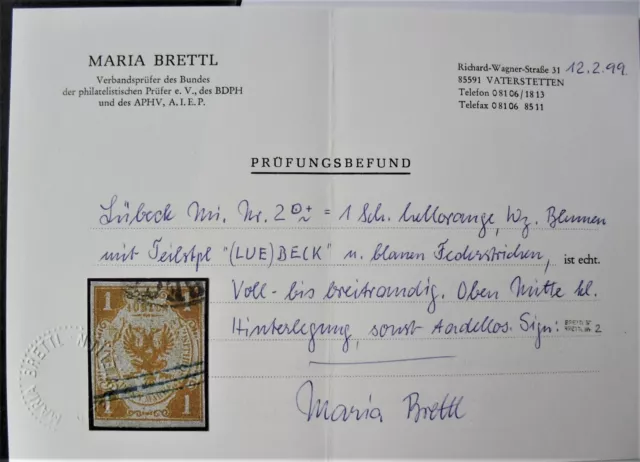 MARIA BRETTL
Verbandsprüfer des Bundes
der philatelistischen Prüfer e. V., des BDPH
und des APHV, A. I. E. P.
Richard-Wagner-Straße 31 12.2.99
85591 VATERSTETTEN
Telefon 0 81 06 / 18 13
Telefax 0 81 06 85 11
PRÜFUNGSBEFUND
Lübeck Mi. Nr. 2 = 1 Sch. hellorange, Wz. Blumen
mit Teilstpl "(LUE)BECK" u. blauen Federstrichen, ist echt.
Voll- bis breitrandig. Oben Mitte kl.
Hinterlegung, sonst tadellos. Sign: 2
1 1
1 1
MARIA BRETTL
Maria Brettl